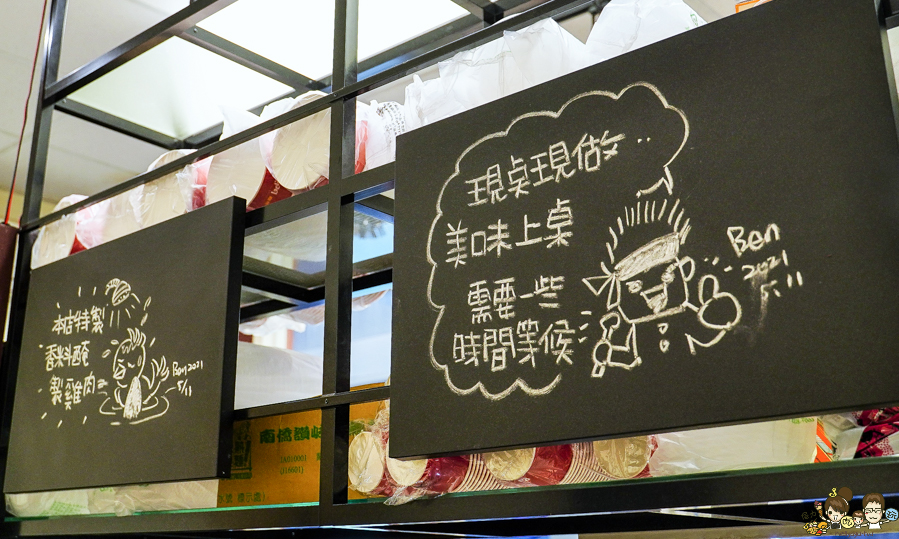 本店特製
香料醃
製雞肉
Ben 2021
5/11
現桌現做..
美味上桌
需要一些
時間等候
Ben
2021
5/11
南僑讚岐
(A01000)
(J16601)